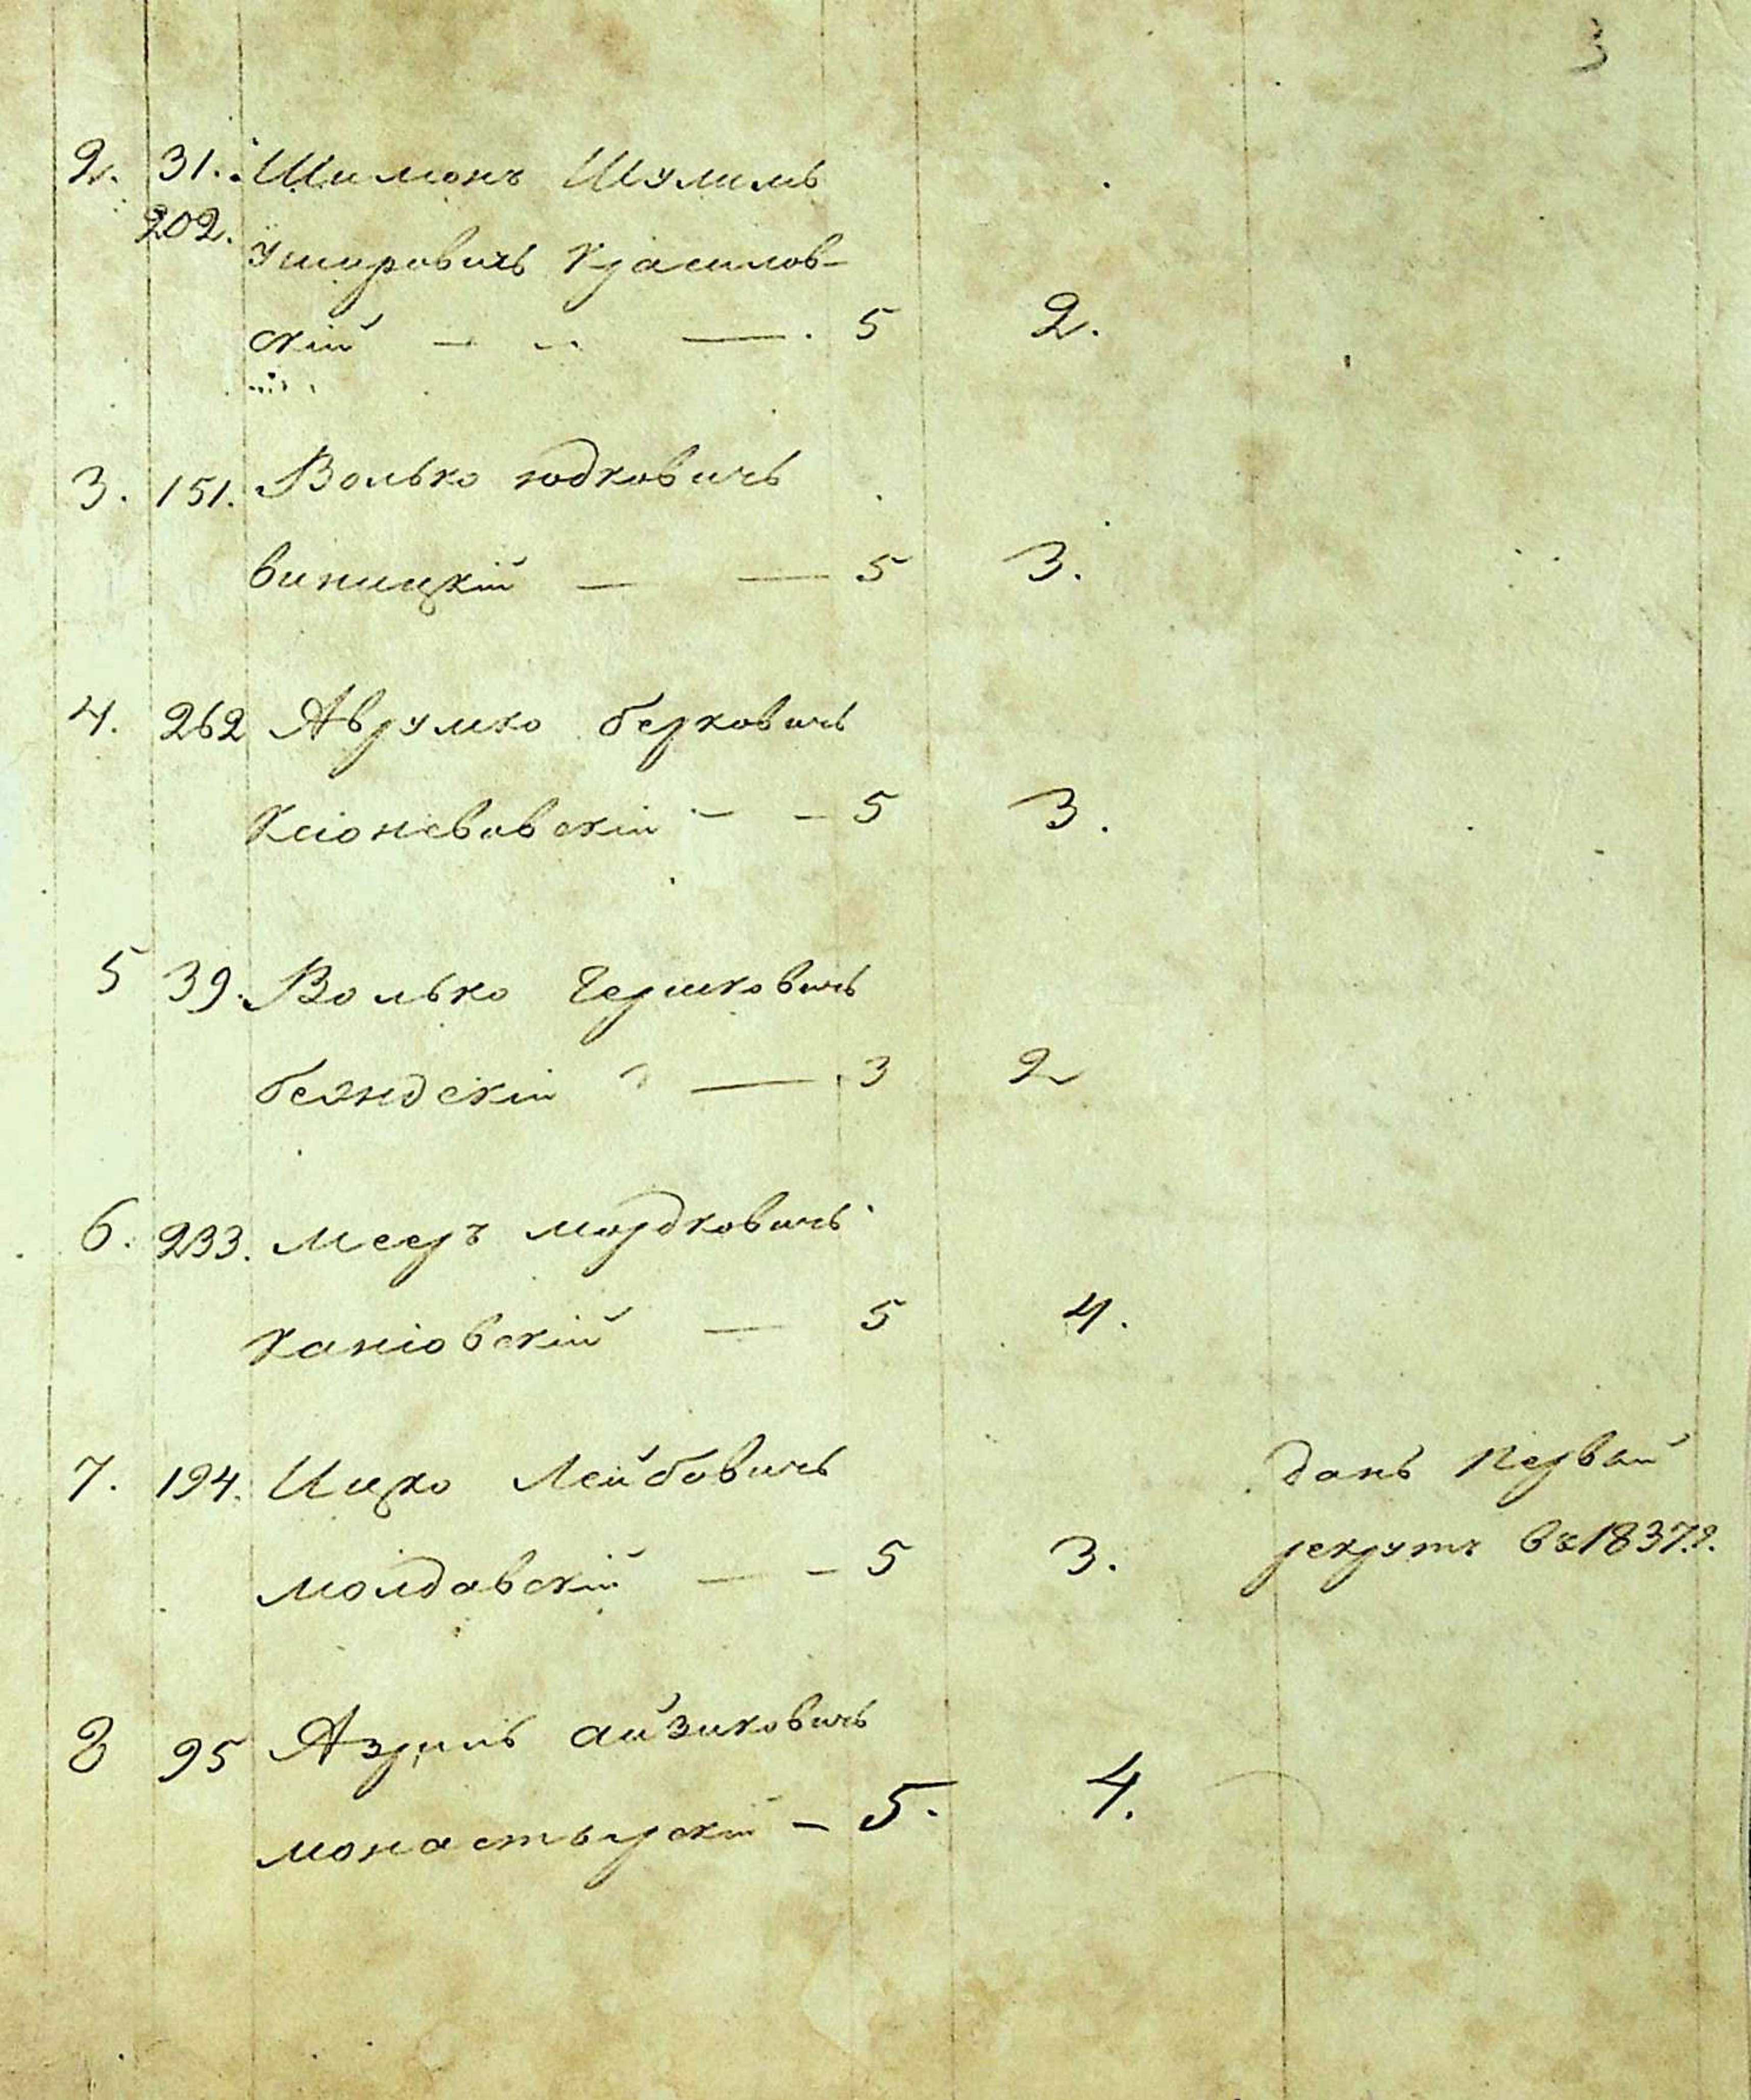 3
2. 31. Шимонъ Шулимъ
202. Ушеровичъ Красилов-
скій — — — 5 2.
3. 151. Волько юдковичъ
виницкій — — 5 3.
4. 262 Аврумко берковичъ
Ксіонсвовскій — — 5 3.
5 39. Волько Гершковичъ
бендскій — 3 2
6. 233. мееръ мордковичъ
Каніовскій — 5 4.
7. 194. Ицко Лейбовичъ данъ Первый
молдавскій — — 5 3. рекрутъ въ 1837 г.
8 95 Азриль айзиковичъ
монастырскій — 5. 4.